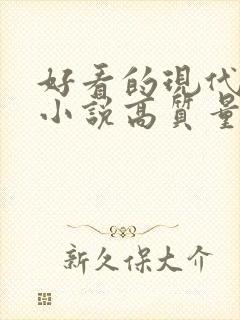 好看的現代
小說高質量
新久保大介